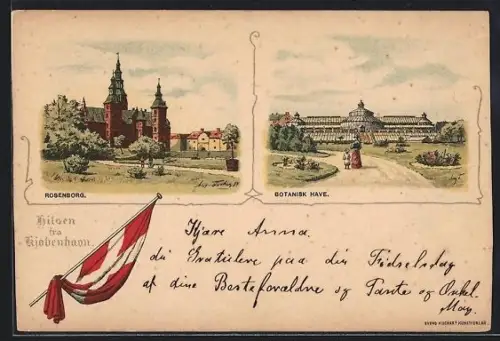 ROSENBORG.
BOTANISK HAVE.
Hilsen
fra
Kjøbenhavn.
Kjære Anna.
du Gratulere paa din Fødselsdag
af dine Bestefoældre og Tante og Onkel
May.